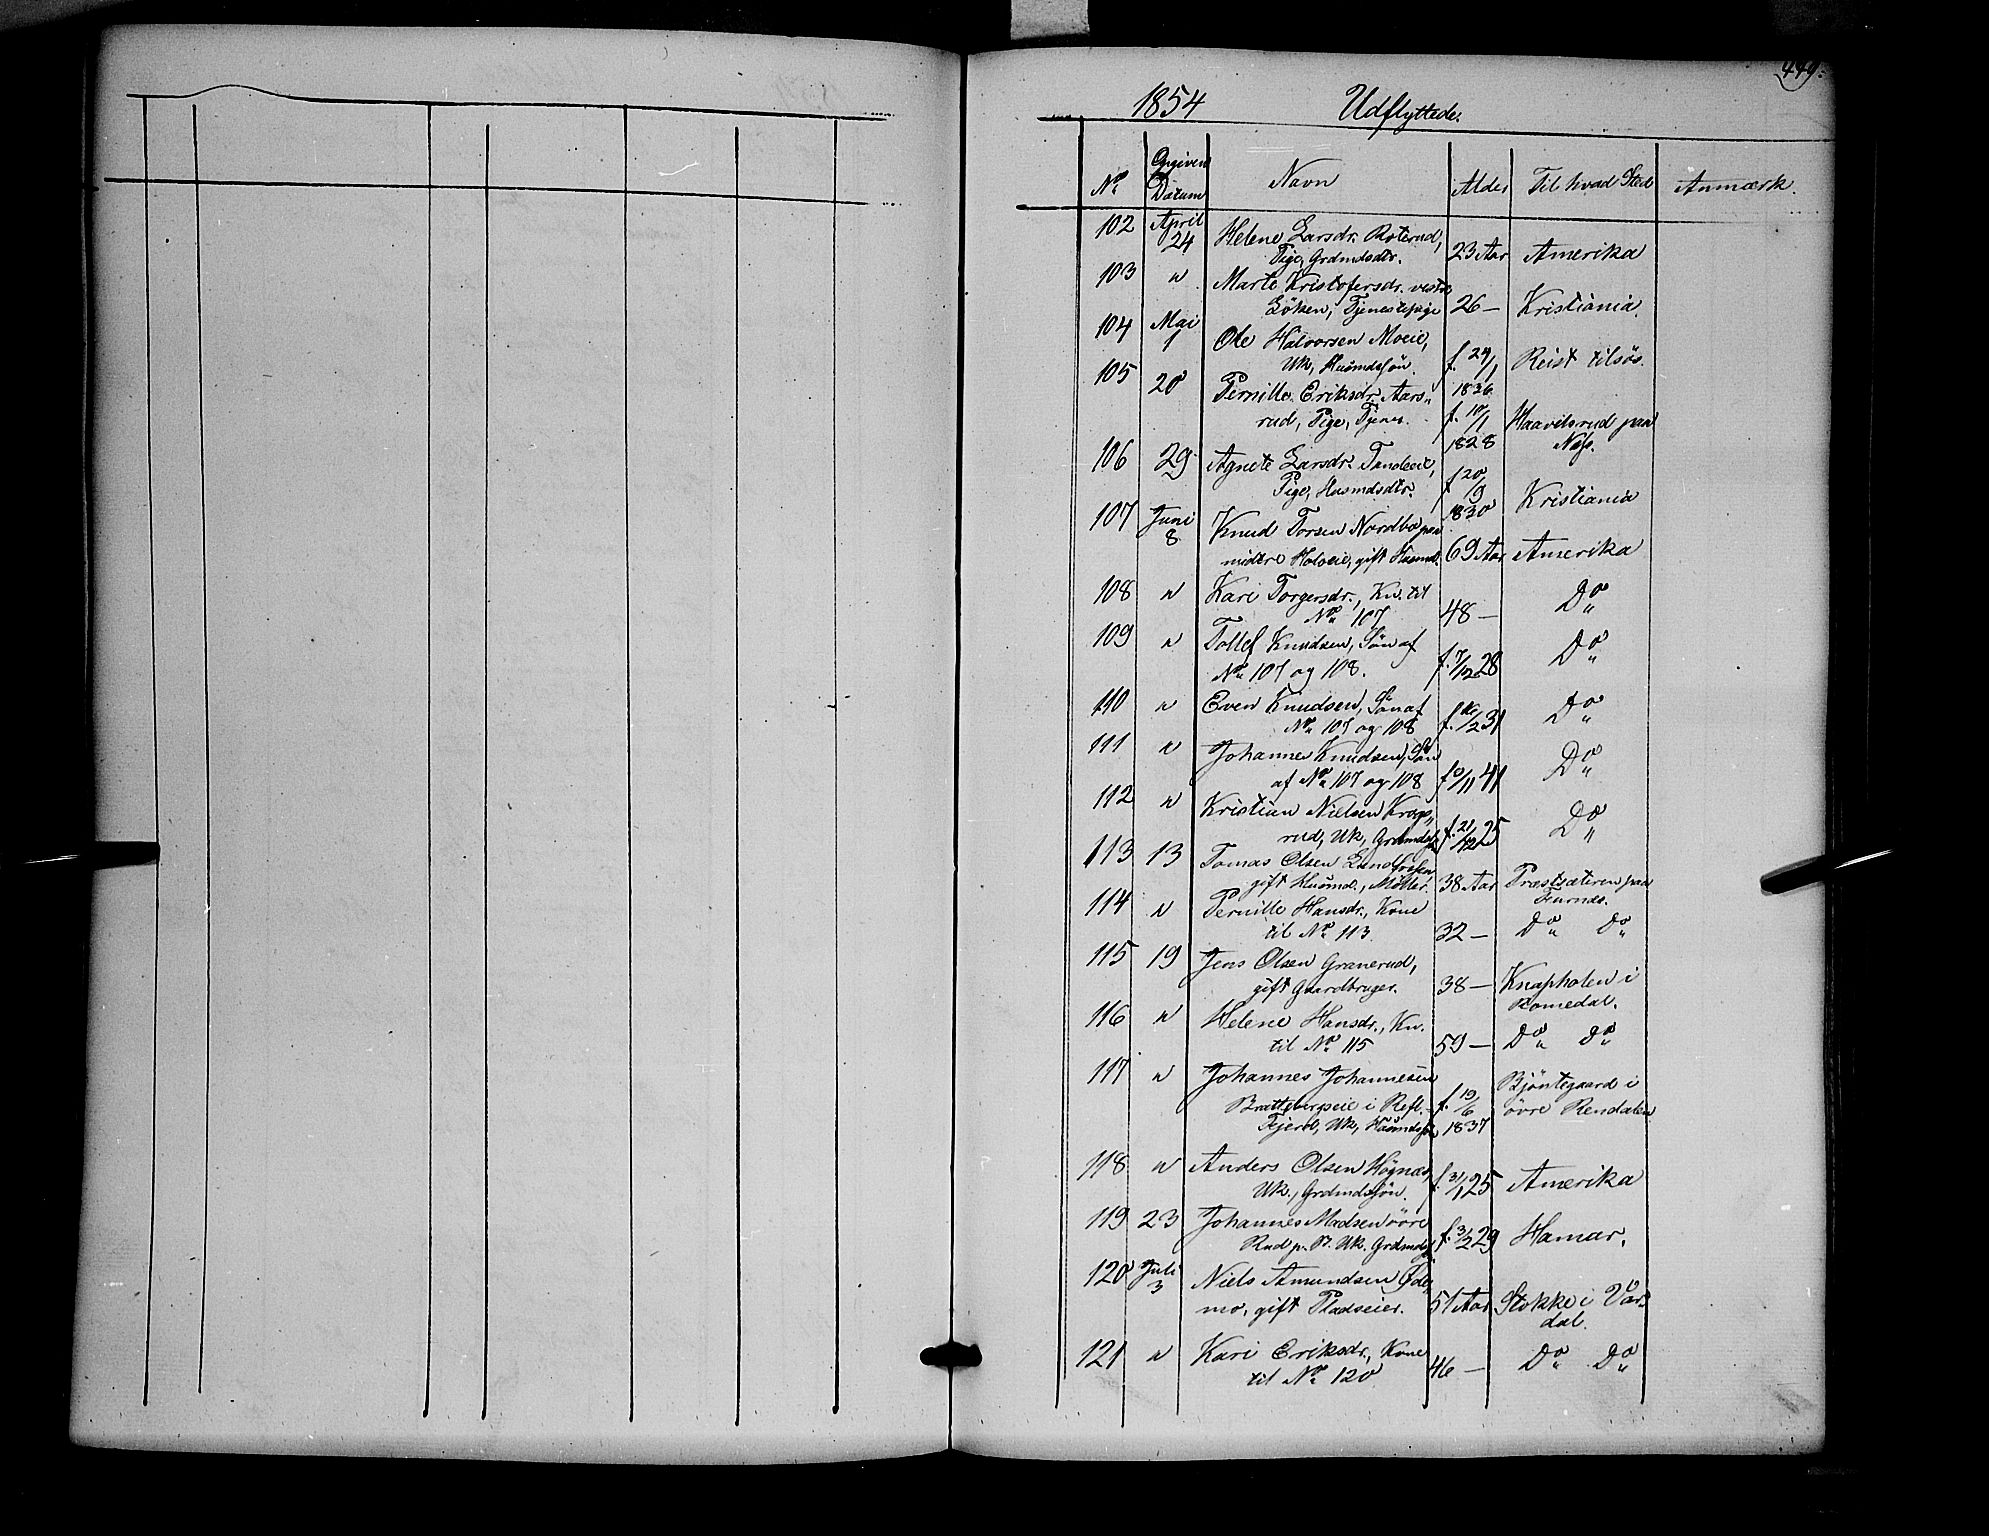 449.
1854 Udflyttede.
No Opgiven Datum Navn Alder Til hvad Sted Anmærk.
102 April 24 Helene Larsdr. Roterud,
Pige, Grdmdsdtr. 23 Aar Amerika
103 " Marte Kristofersdr. vestre
Löken, Tjenestepige 26 — Kristiania.
104 Mai 1 Ole Halvorsen Moeie,
Uk, Husmdssön. f. 24/1 1836 Reist tilsös.
105 20 Pernille Eriksdr. Aars-
rud, Pige, Tjenes. f. 10/1 1828 Haavelsrud paa
Næs.
106 29 Agnete Larsdr.
Pige, Husmdsdtr. f 20/9 1830 Kristiania
107 Juni 8 Knud Torsen Nordbo paa
midtre Holoeie, gift Husmd. 69 Aar Amerika
108 " Kari Torgersdr., Kn. til
No 107 48 — Do
109 " Tollef Knudsen, Sön af
No 107 og 108. f. 7/12 28 Do
110 " Even Knudsen, Sön af
No 107 og 108 Do
111 " Johannes Knudsen, Sön
af No 107 og 108 Do
112 " Kristian Nielsen Krogs-
rud, Uk, f. 21/12 25 Do
113 13 Tomas Olsen
gift Husmd., Möller. 38 Aar Præstsæteren paa
Furnæs.
114 " Pernille Hansdr., Kone
til No 113. 32 — Do Do
115 19 Jens Olsen Granerud,
gift Gaardbruger. 38 — Knapholen i
Romedal.
116 " Helene Hansdr., Kn.
til No 115 59 — Do do
117 " Johannes Johannesen
Brattebergseie i Refl.- f. 19/6 1837 Bjöntegaard i
Fjerd, Uk, Husmdssön övre Rendalen
118 " Anders Olsen Högnæs,
Uk., Grdmdssön. f. 31/1 25 Amerika
119 23 Johannes Madsen övre
Rud p. Uk. f. 3/2 29 Hamar.
120 Juli 3 Niels Amundsen Öde-
mo, gift Pladseier. 51 Aar Stokke i Var-
dal.
121 " Kari Eriksdr., Kone
til No 120 46 — Do Do